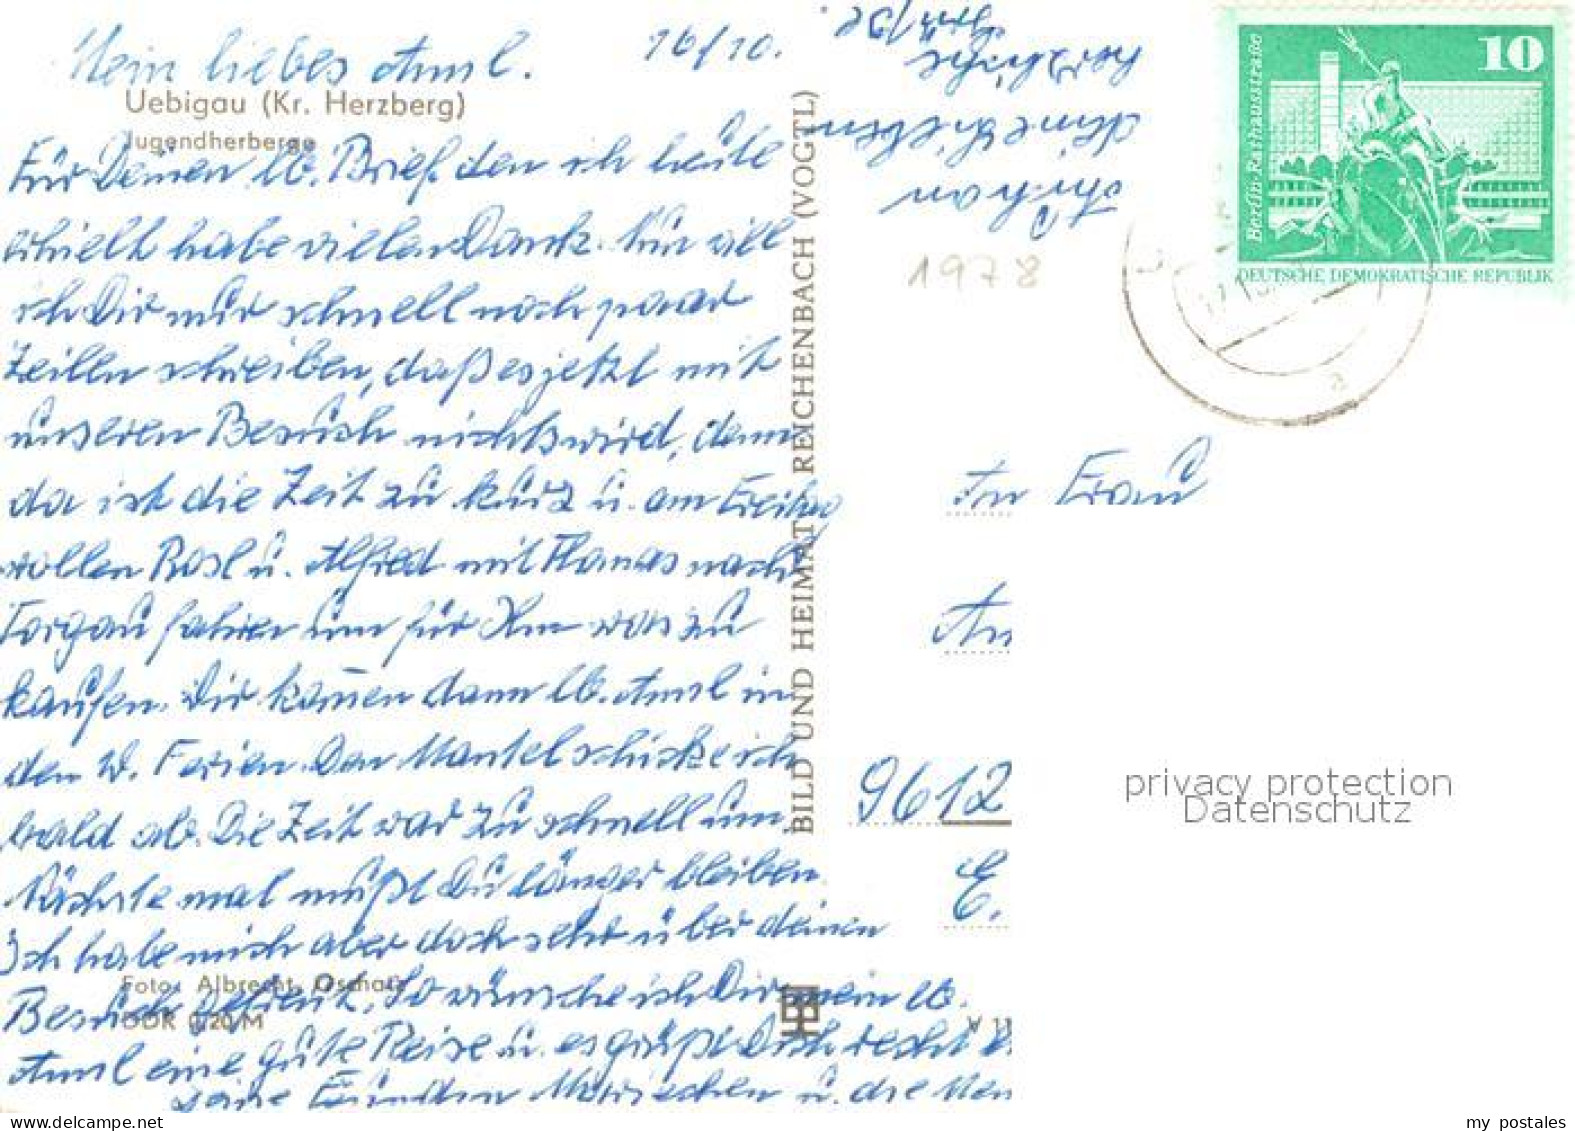 Mein liebes Annl. 16/10.
Uebigau (Kr. Herzberg)
Jugendherberge
Für Deinen lb. Brief den ich heute
erhielt habe vielen Dank. Nun will
ich Dir nur schnell noch paar
Zeilen schreiben, daß es jetzt mit
unseren Besuch nichts wird, denn
da ist die Zeit zu kurz u. am Freitag
wollen Rosl u. Alfred mit Thomas nach
Torgau fahren um für Ihn was zu
kaufen. Wir kommen dann lb. Annl in
den W. Ferien. Den Mantel schicke ich
bald ab. Die Zeit war zu schnell um.
Nächste mal mußt Du länger bleiben.
Ich habe mich aber doch sehr über deinen
Besuch gefreut. So wünsche ich Dir mein lb.
Annl eine gute Reise u. es grüßt Dich recht
seine u. die
Foto: Albrecht, Oschatz
DDR 0,20 M
BILD UND HEIMAT REICHENBACH (VOGTL)
herzliche
Grüße
1978
10
Berlin-Rathausstraße
DEUTSCHE DEMOKRATISCHE REPUBLIK
An Frau
An
9612
E.
privacy protection
Datenschutz
www.delcampe.net
my postales